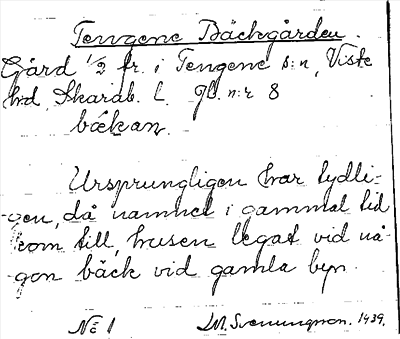 Tengene Bäckgården.
Gård 1/2 fr. i Tengene s:n, Viste
hrd, Skarab. L. Jb. n:r 8
bækan.
Ursprungligen har tydli-
gen, då namnet i gammal tid
kom till, husen legat vid nå-
gon bäck vid gamla byn.
No 1 Svenungson. 1939.